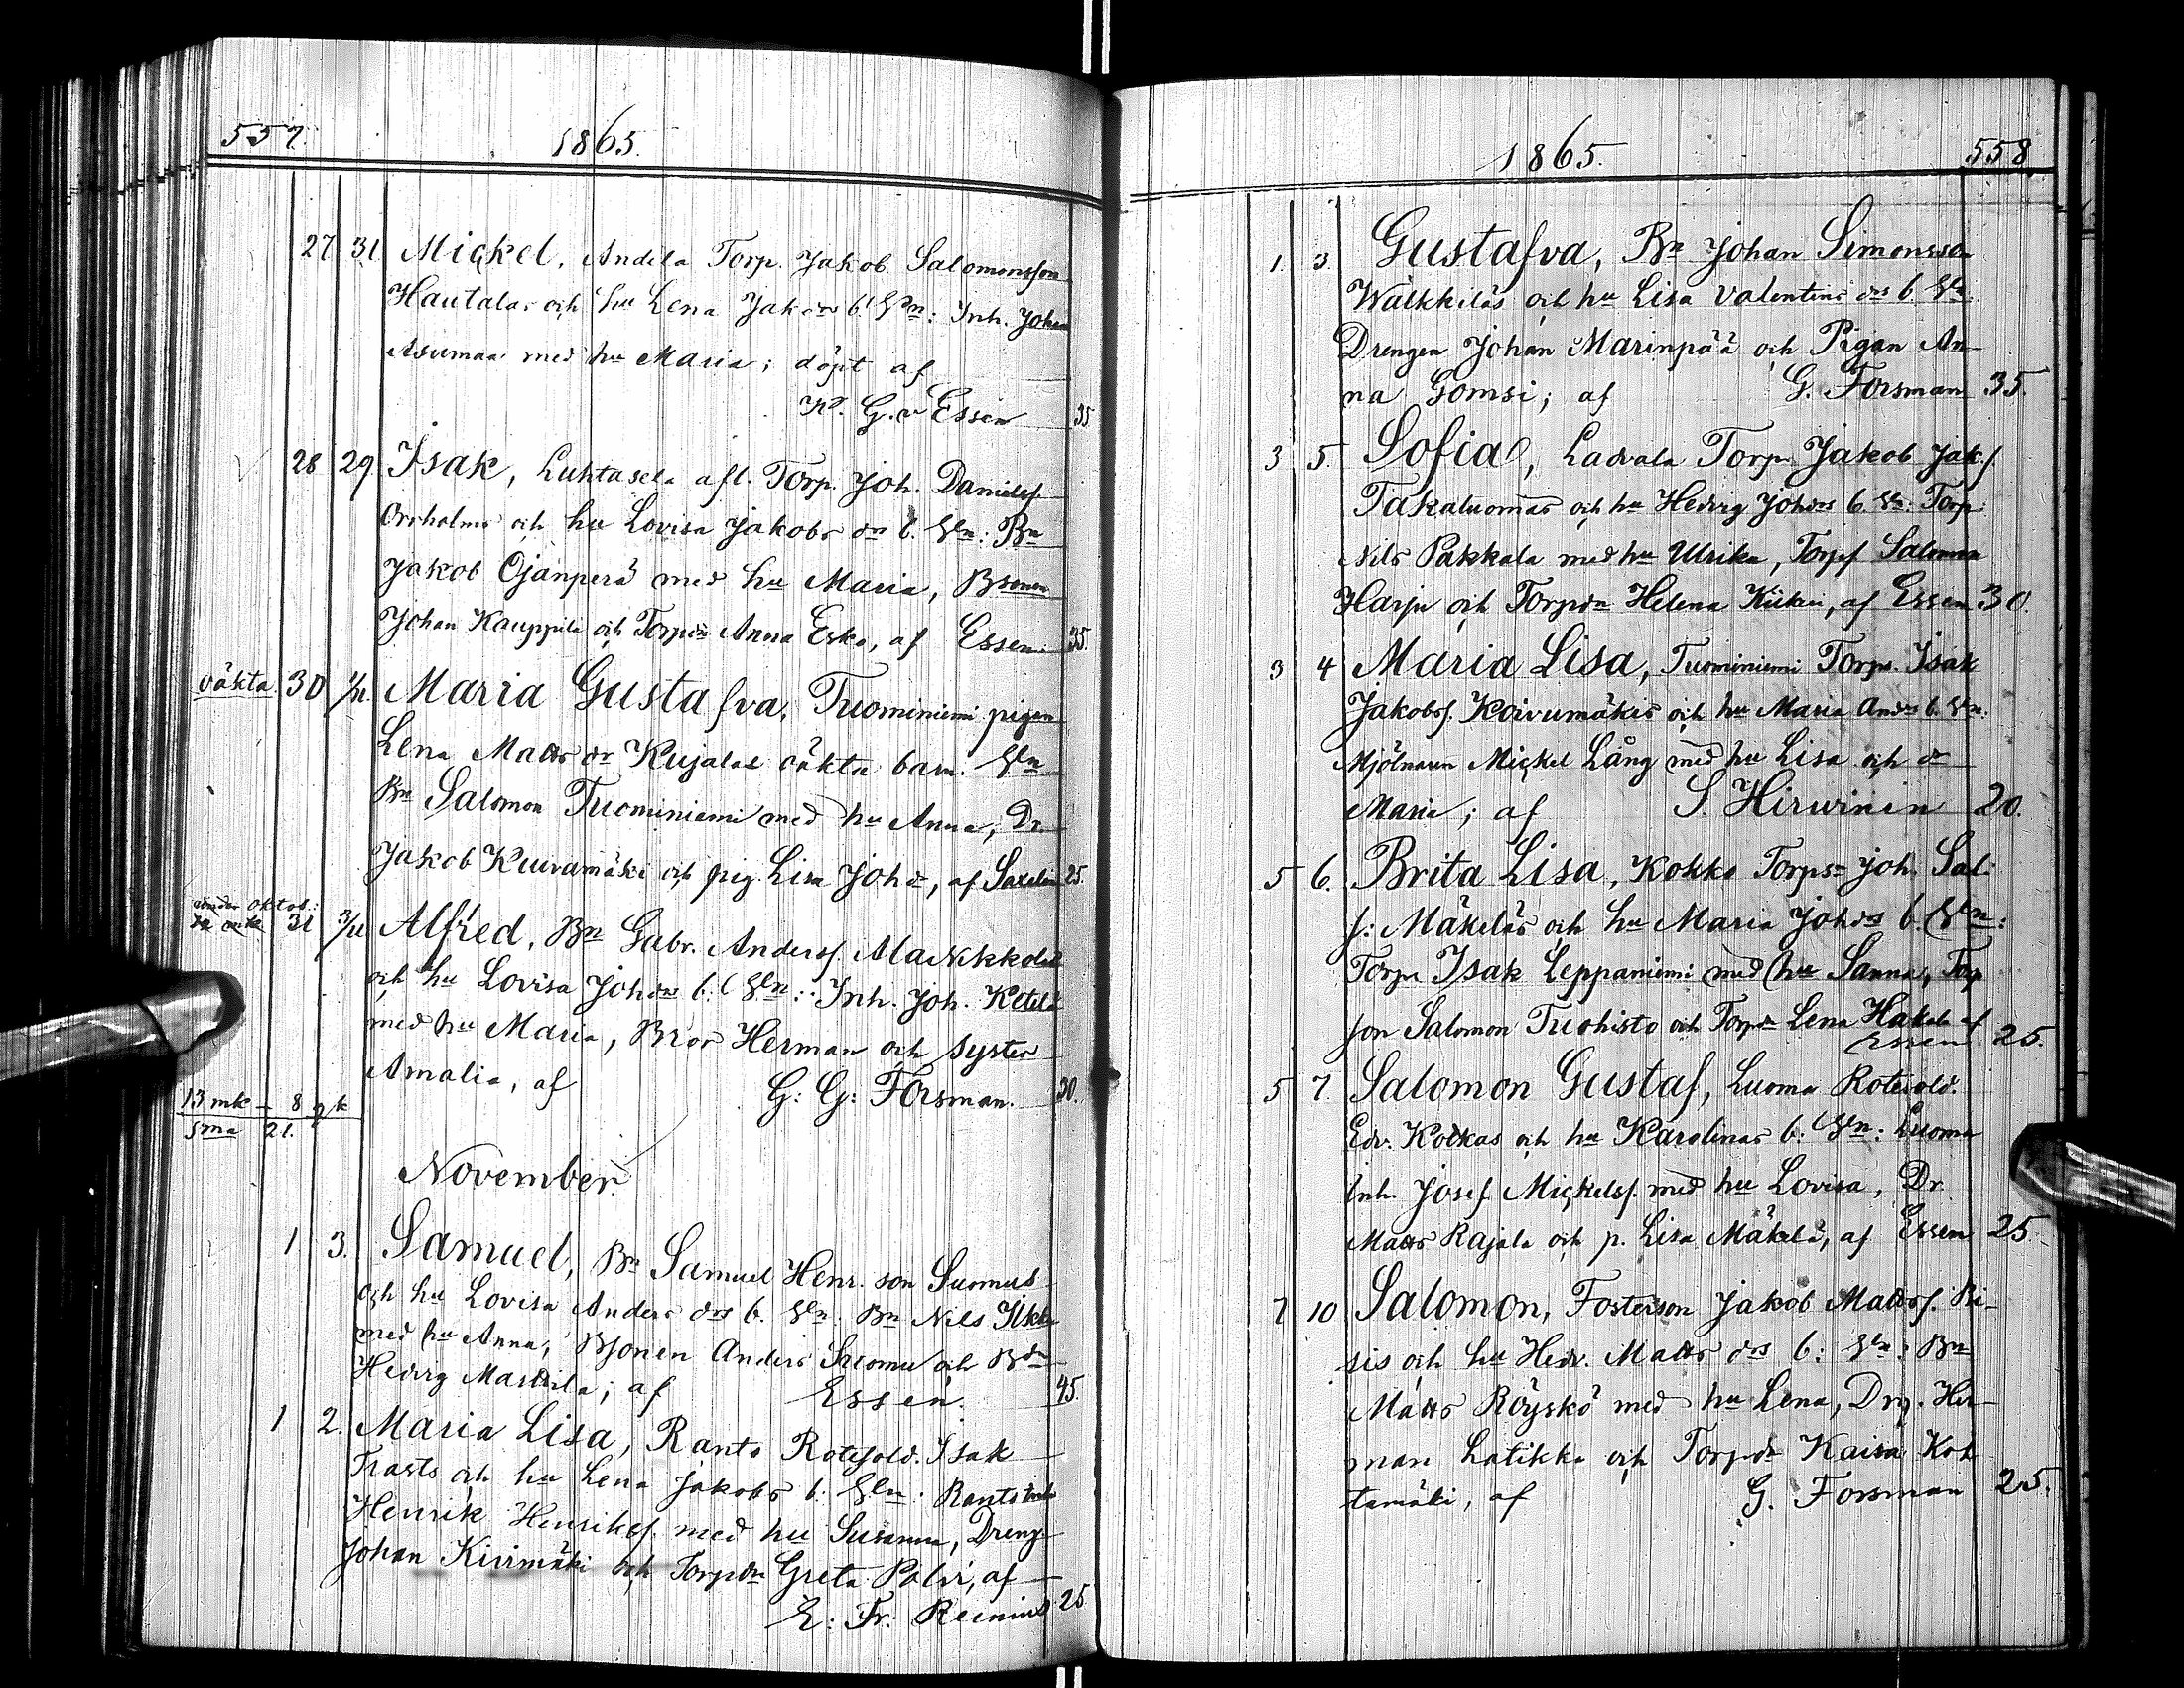 557. 1865.
27 31 Mickel, Andila Torp. Jakob Salomonsson
Hautalas och hu Lena Jak drs b. Vn: Inh. Johan
Asumaa med hu Maria; döpt af
K. G. v Essen 35.
28 29. Isak, Luhtasela afl. Torp. Joh. Danielss.
Orrholms och hu Lovisa Jakobs dr b. Vn: Bn
Jakob Ojanperä med hu Maria, Bsonen
Johan Kauppila och Torpdn Anna Esko, af Essen. 35.
oäkta. 30 1/11. Maria Gustafva, Tuominiemi pigan
Lena Matts dr Kujalas oäkta barn. Vn
Bn Salomon Tuominiemi med hu Anna, Dr.
Jakob Kuuramäki och pig. Lisa Joh dr, af Saxelin 25.
oktob.: 31 3/11 Alfred, Bn Gabr. Anderss. Ala Nikkolas
och hu Lovisa Joh drs b. Vn: Inh. Joh. Ketola
med hu Maria, Bror Herman och syster
Amalia, af G: G: Forsman. 30.
13 mk – 8 qk
Sma 21.
November.
1 3. Samuel, Bn Samuel Henr. son Suomus
och hu Lovisa Anders drs b. Vn. Bn Nils Ilkka
med hu Anna, Bsonen Anders Suomu och Bdn
Hedvig Marttila; af Essen. 45.
1 2. Maria Lisa, Ranto Rotesold. Isak
Trasts och hu Lena Jakobs b. Vn: Ranto Inh
Henrik Henrikss. med hu Susanna, Dreng
Johan Kivimäki och Torpdn Greta Palvi, af
E: Fr: Reinius 25
1865. 558
1. 3. Gustafva, Bn Johan Simonsson
Wälkkiläs och hu Lisa Valentins drs b. Vn:
Drengen Johan Marinpää och Pigan An-
na Gomsi; af G. Forsman 35.
3 5. Sofia, Ladvala Torp. Jakob Jak.s.
Takaluomas och hu Hedvig Joh drs b. Vn: Torp.
Nils Pakkala med hu Ulrika, Torps Salomon
Harju och Torpdn Helena Kiikeri, af Essen 30.
3 4 Maria Lisa, Tuominiemi Torp. Isak
Jakobs. Koivumäkis och hu Maria And drs b. Vn:
Mjölnaren Mickel Lång med hu Lisa och dr
Maria; af S. Hirwinen 20.
5 6. Brita Lisa, Kokko Torps Joh. Sal:
s: Mäkeläs och hu Maria Joh drs b. Vn:
Torp Isak Leppaniemi med hu Sanna, Torp
son Salomon Tuohisto och Torpdr Lena Hakala af
Essen 25.
5 7. Salomon Gustaf, Luoma Rotesold.
Edv. Kotkas och hu Karolinas b: Vn: Luoma
Inh. Josef Mickels. med hu Lovisa, Dr.
Matts Rajala och p. Lisa Mäkelä, af Essen 25.
7 10 Salomon, Fosterson Jakob Mattss. Ri-
sis och hu Hedv. Matts drs b: Vn: Bn
Matts Röyskö med hu Lena, Drg. Her-
man Latikka och Torpdr Kaisa Koh
tamäki, af G. Forsman 25.